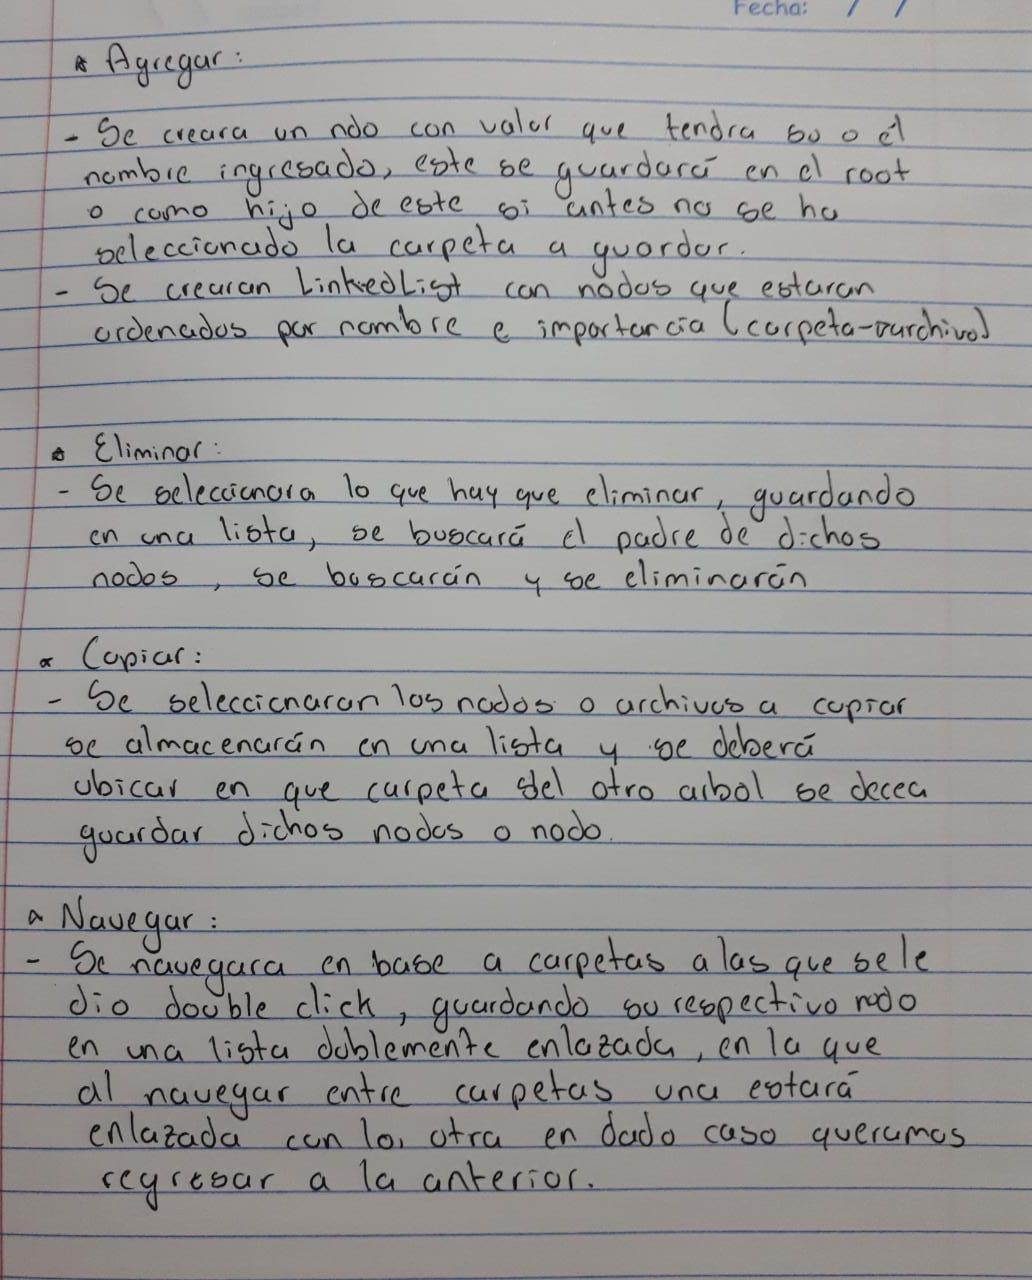 Fecha: / /
* Agregar:
- Se creara un ndo con valor que tendra su o el
nombre ingresado, este se guardará en el root
o como hijo de este si antes no se ha
seleccionado la carpeta a guardar.
- Se crearan LinkedList con nodos que estaran
ordenados por nombre e importancia (carpeta-archivo)
* Eliminar:
- Se seleccionara lo que hay que eliminar, guardando
en una lista, se buscará el padre de dichos
nodos, se buscarán y se eliminarán
* Copiar:
- Se seleccionaran los nodos o archivos a copiar
se almacenarán en una lista y se deberá
ubicar en que carpeta del otro arbol se decea
guardar dichos nodos o nodo.
* Navegar:
- Se navegara en base a carpetas a las que se le
dio double click, guardando su respectivo nodo
en una lista doblemente enlazada, en la que
al navegar entre carpetas una estará
enlazada con la otra en dado caso queramos
regresar a la anterior.